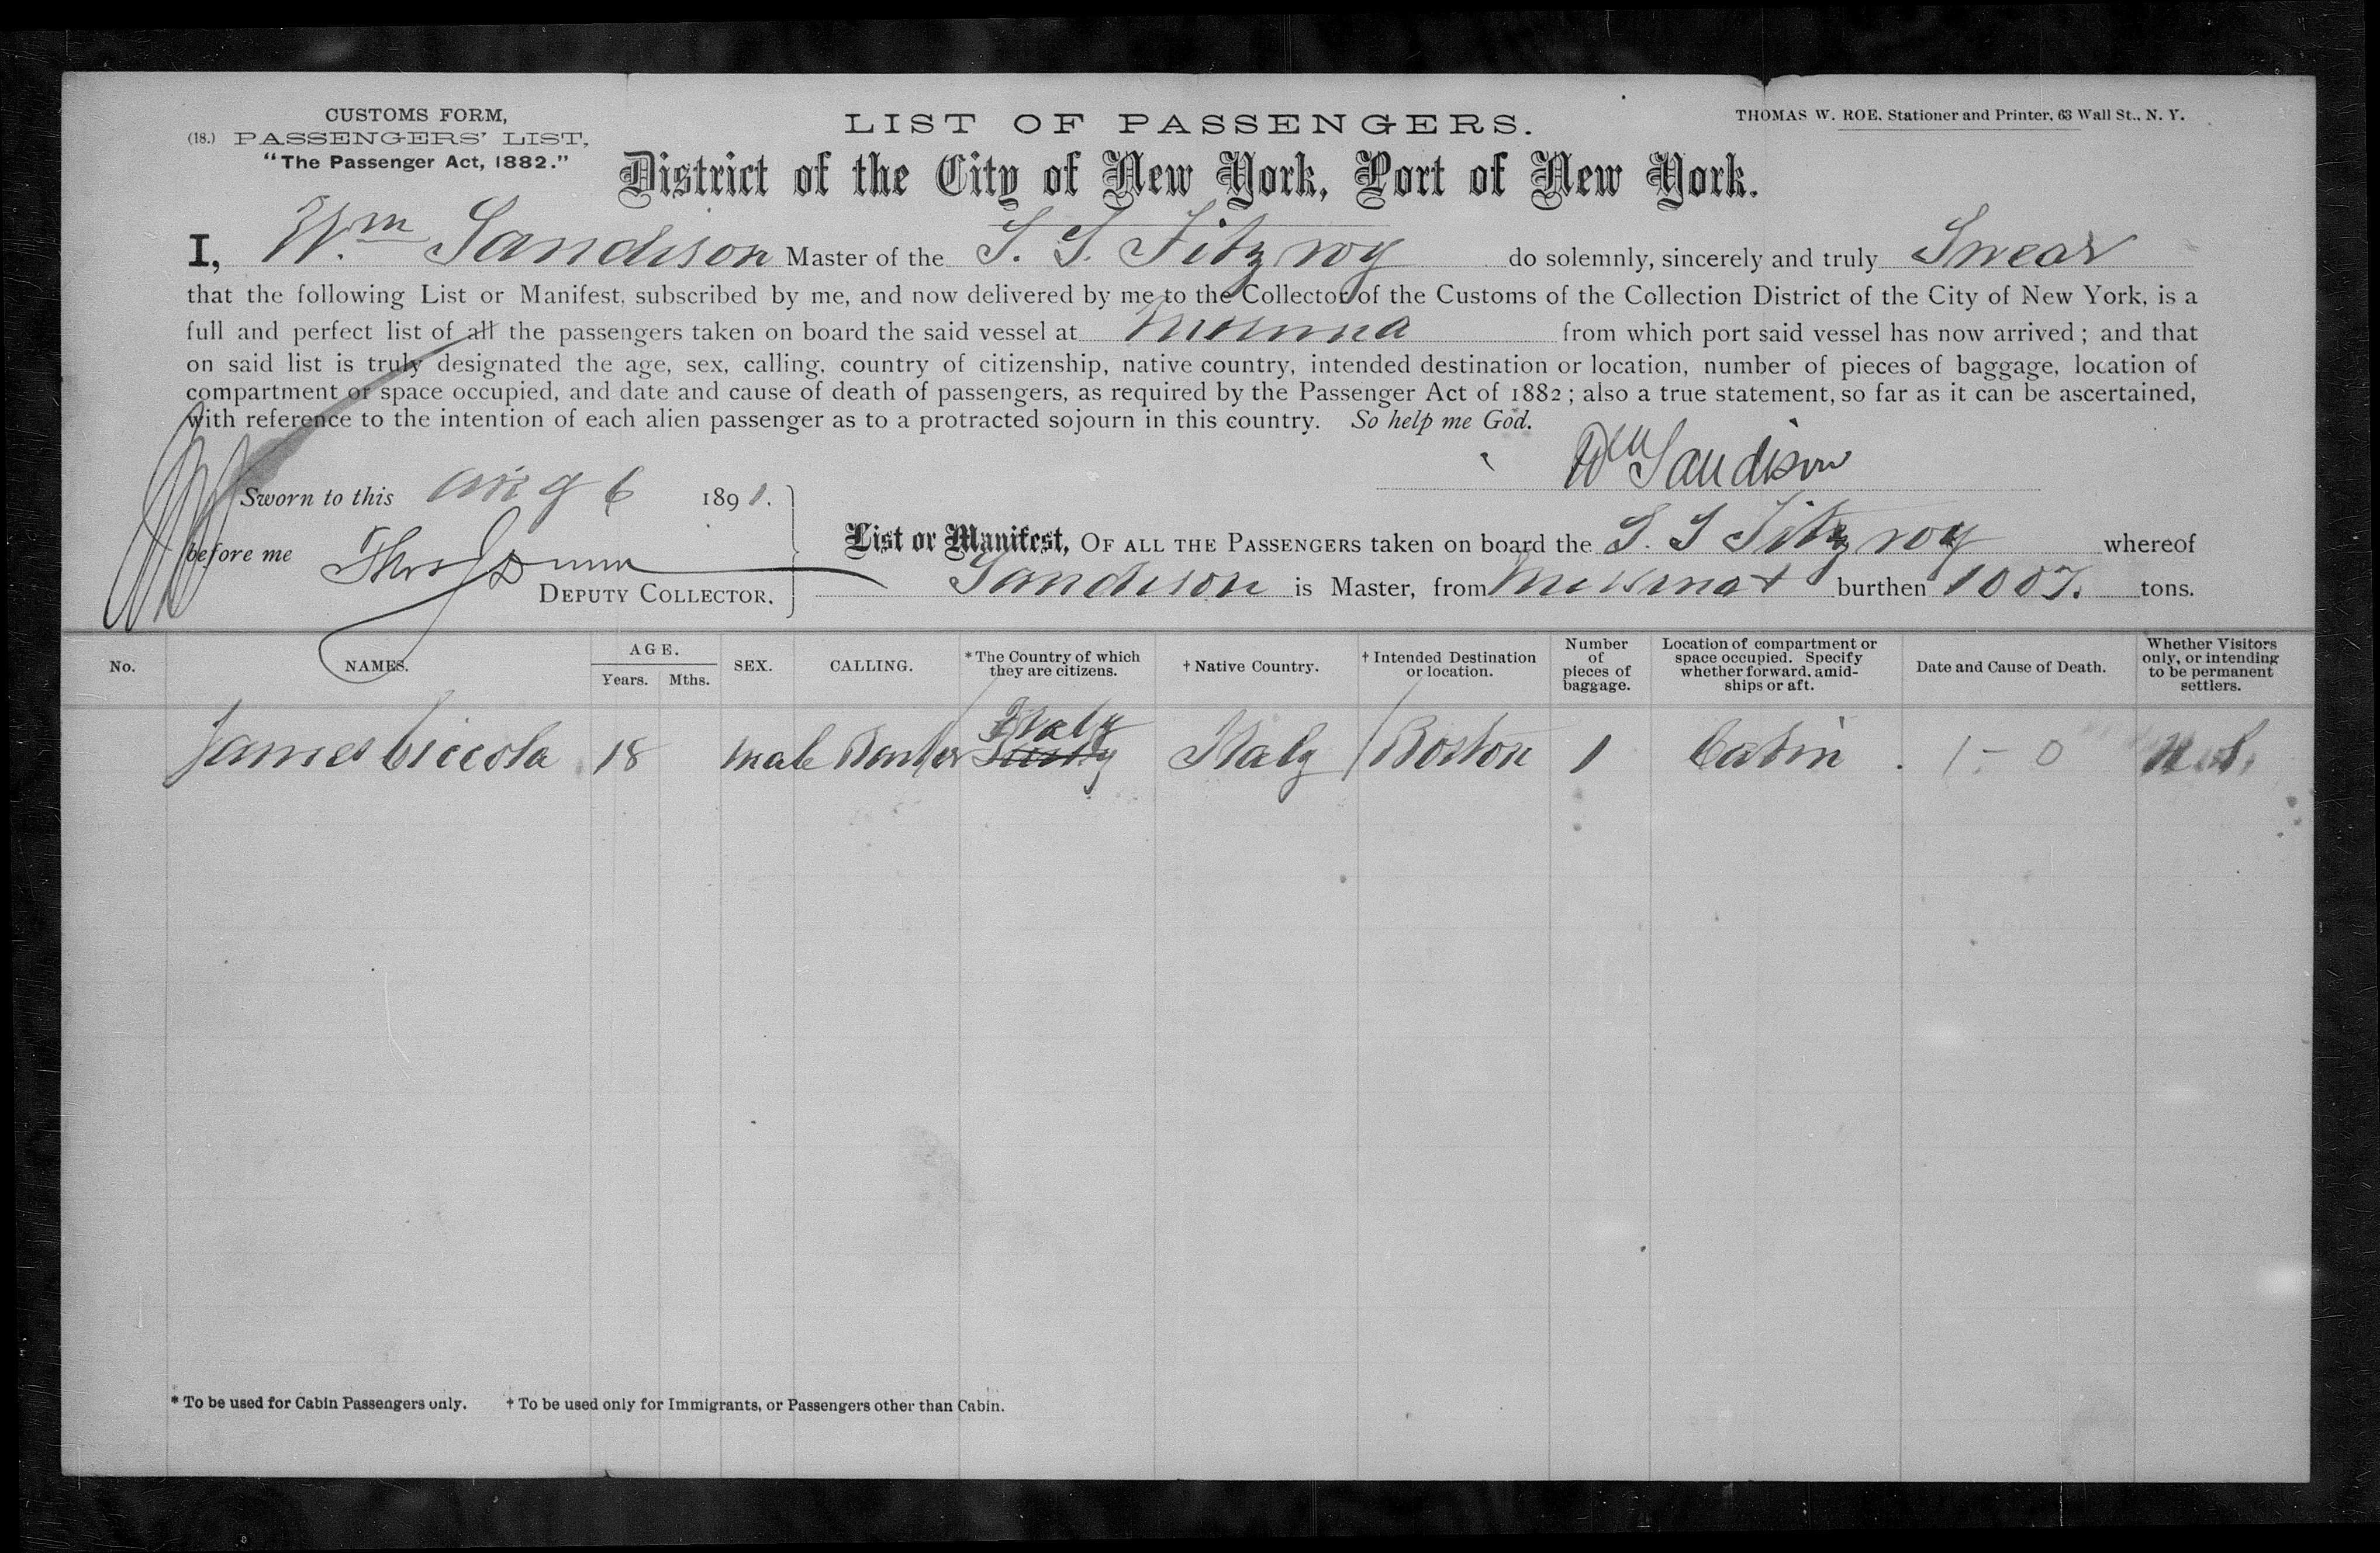 CUSTOMS FORM,
(18.) PASSENGERS' LIST,
"The Passenger Act, 1882."
LIST OF PASSENGERS.
THOMAS W. ROE, Stationer and Printer, 63 Wall St., N. Y.
District of the City of New York, Port of New York.
I, Wm Sandison Master of the S. S. Fitzroy do solemnly, sincerely and truly Swear
that the following List or Manifest, subscribed by me, and now delivered by me to the Collector of the Customs of the Collection District of the City of New York, is a
full and perfect list of all the passengers taken on board the said vessel at from which port said vessel has now arrived; and that
on said list is truly designated the age, sex, calling, country of citizenship, native country, intended destination or location, number of pieces of baggage, location of
compartment or space occupied, and date and cause of death of passengers, as required by the Passenger Act of 1882; also a true statement, so far as it can be ascertained,
with reference to the intention of each alien passenger as to a protracted sojourn in this country. So help me God.
Wm Sandison
Sworn to this Aug 6 1891.
before me Thos Dunn
DEPUTY COLLECTOR.
List or Manifest, OF ALL THE PASSENGERS taken on board the S. S Fitzroy whereof
Sandison is Master, from burthen 1007. tons.
No. NAMES. AGE. Years. Mths. SEX. CALLING. * The Country of which they are citizens. † Native Country. † Intended Destination or location. Number of pieces of baggage. Location of compartment or space occupied. Specify whether forward, amidships or aft. Date and Cause of Death. Whether Visitors only, or intending to be permanent settlers.
James Ciccola 18 male Italy Italy Boston 1 Cabin 1 - 0
* To be used for Cabin Passengers only. † To be used only for Immigrants, or Passengers other than Cabin.